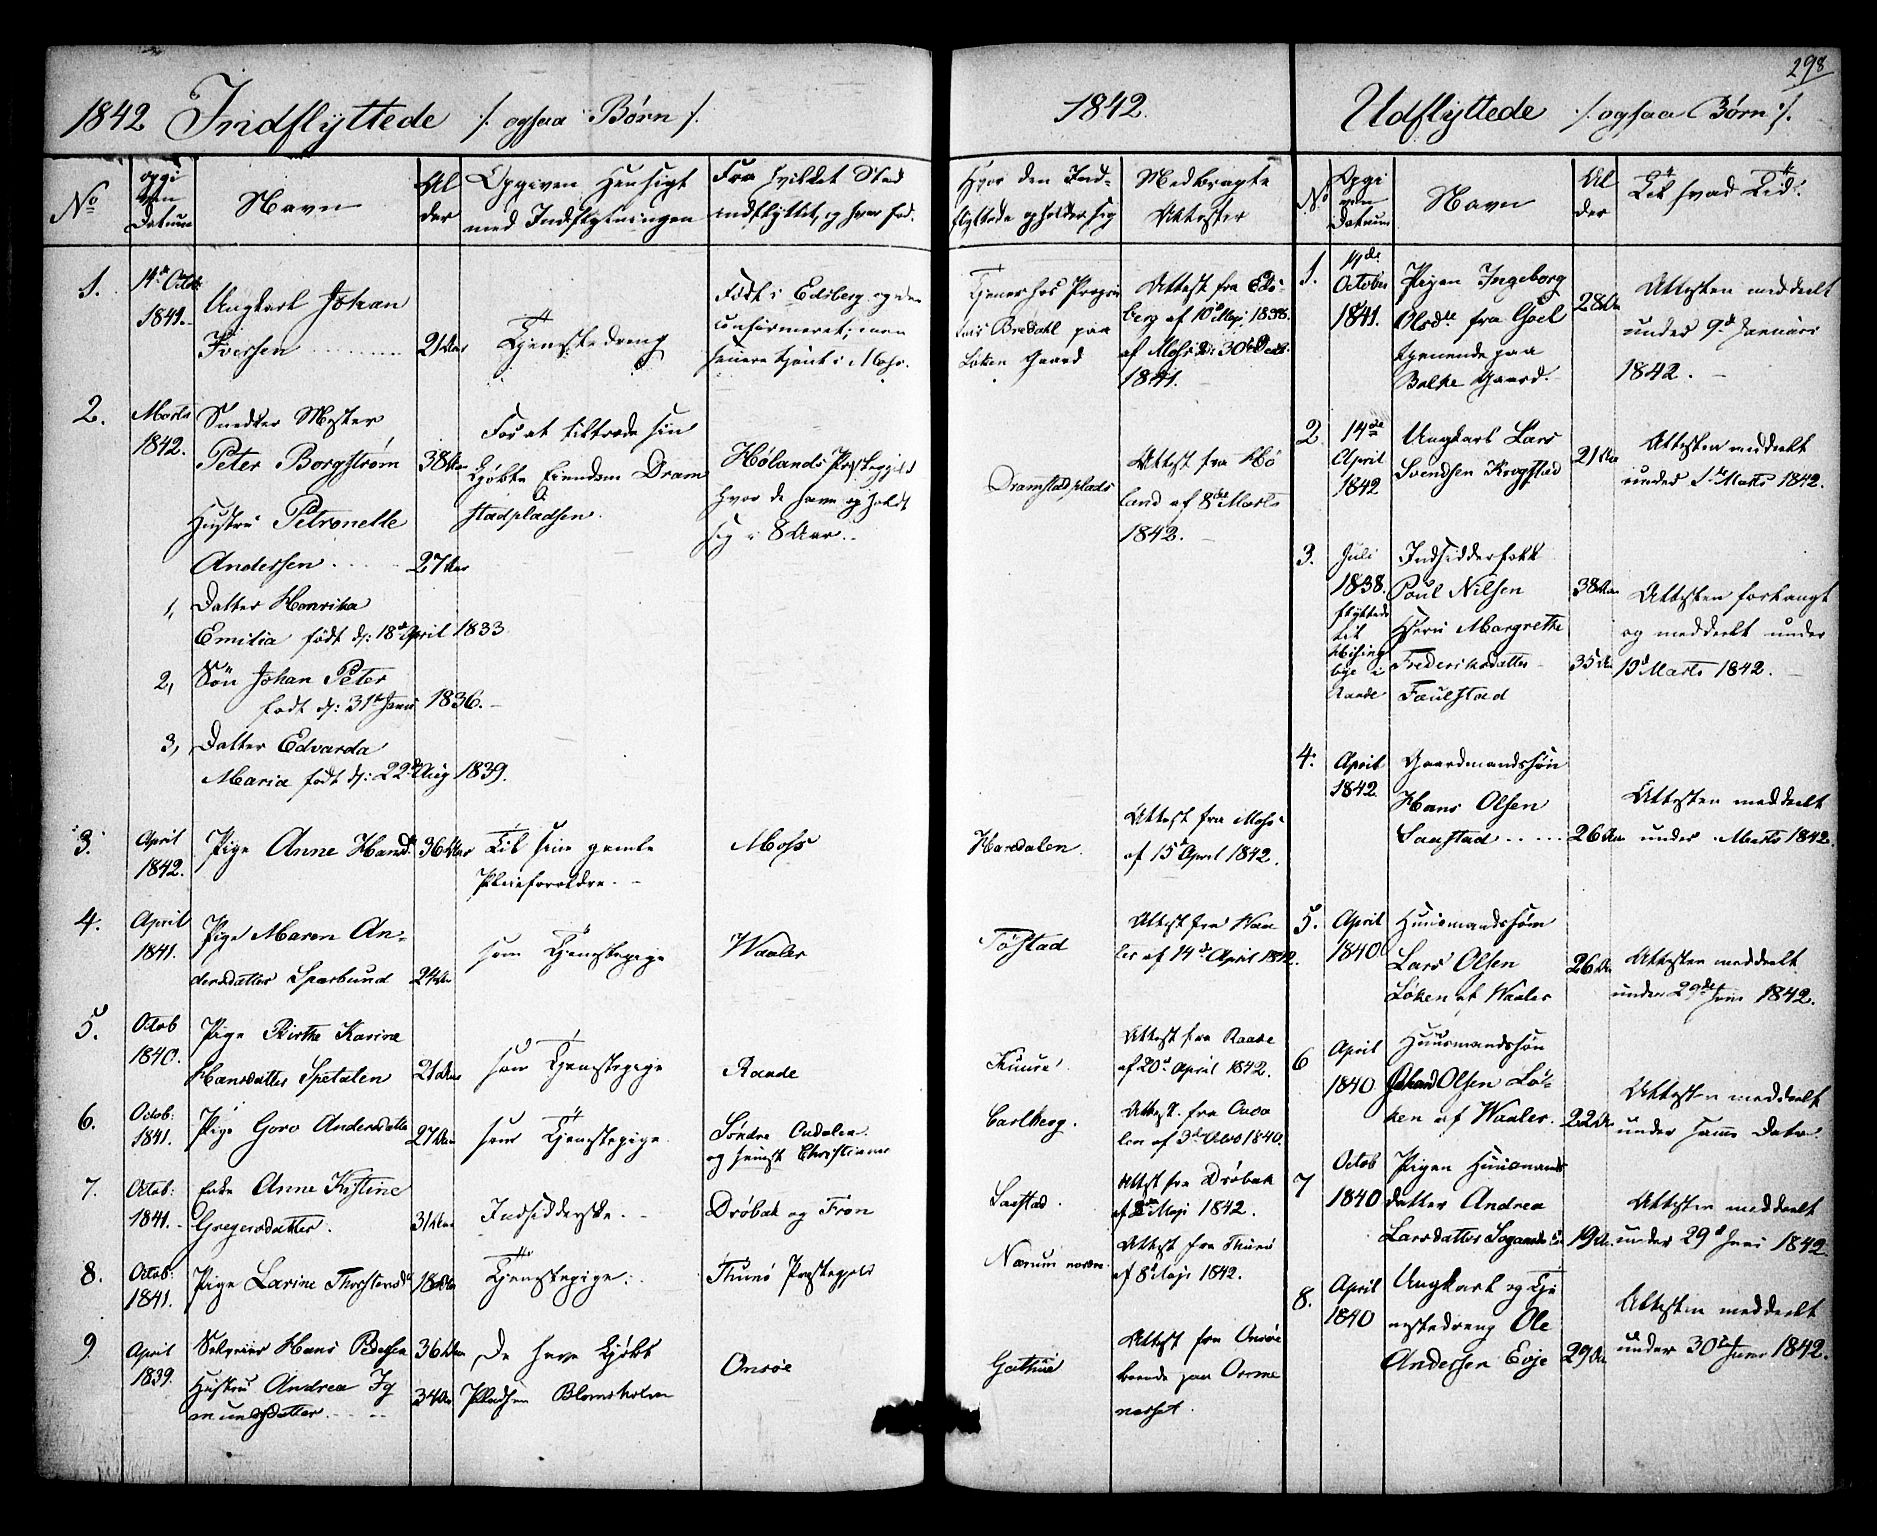 298
1842 Indflyttede /: ogsaa Børn :/
1842.
Udflyttede /: ogsaa Børn :/.
No
opgi
ven
Datum
Navn
Al
der
Opgiven Hensigt
med Indflytningen
Fra hvilket Sted
indflyttet, og hvor fød.
Hvor den Ind-
flyttede opholder sig
Medbragte
Attester
No
Opgi
ven
Datum
Navn
Al
der
Til hvad Tid.
1.
14de Octob
1841.
Ungkarl Johan
Iversen
21 Aar
Tjenestedreng
Født i Edsberg og der
confirmeret; men
senere tjent i Moss.
Tjener hos
Bredahl paa
Løken Gaard
Attest fra Eds-
berg af 10 Maji 1838.
af Moss d: 30te Decb.
1841.
2.
Marts
1842.
Snedker Mester
Peter Borgstrøm
38 Aar
Hustru Petronelle
Andersen
27 Aar
For at tiltræde sin
kjøbte Eiendom Dram
stadpladsen.
Hølands Præstegjeld
hvor de have opholdt
sig i 8 Aar.
Dramstadplads
Attest fra Hø
land af 8de Marts
1842.
1, Datter Henrika
Emilia født d: 18de April 1833
2, Søn Johan Peter
født d: 31te Janu 1836.
3, Datter Edvarda
Maria født d: 22de Aug 1839.
3.
April
1842.
Pige Anne Hansd.
36 Aar
Til sine gamle
Pleieforældre.
Moss
Haredalen.
Attest fra Moss
af 15de April 1842.
4.
April
1841.
Pige Maren An-
dersdatter Sparbund
24 Aar
som Tjenestepige
Waaler
Tøstad
Attest fra Waa
ler af 14de April 1842.
5.
Octob
1840.
Pige Birthe Karine
Hansdatter Spetalen
21 Aar
som Tjenestepige
Raade
Attest fra Raade
af 20de April 1842.
6.
Octob:
1841.
Pige Goro Andersdatter
27 Aar
som Tjenestepige
Søndre Oudalen
og senest Christiania
Carlberg.
Attest fra Ouda
len af 3de 1840.
7.
Octob:
1841.
Enke Anne Kistine
Gregersdatter.
31 Aar
Indsidderske.
Drøbak og Fron
Saxstad.
Attest fra Drøbak
af Maji 1842.
8.
Octob:
1841.
Pige Larine Thorstensd.
18 Aar
Tjenestepige.
Thunø Præstegjeld
Norum nordre.
Attest fra Thunø
af 8de Maji 1842.
9.
April
1839.
Selveier Hans Pedersen
36 Aar
Hustru Andrea Ig
mundsdatter.
34 Aar
De have kjøbt
Pladsen Blomsholm
Onsøe
Attest fra Onsøe
boende paa
næsset.
1.
14de
October
1841.
Pigen Ingeborg
Olsdtr fra Goel
tjenende paa
Balke Gaard.
28 Aar
Attesten meddeelt
under 9de Januari
1842.
2
14de
April
1842
Ungkarl Lars
Svendsen Krogstad
21 Aar
Attesten meddeelt
under 1te Marts 1842.
3.
Juli
1838.
flyttede
til
i
Raade
Indsidderfolk
Poul Nilsen
Hustru Margrethe
Frederiksdatter
Faulstad
38 Aar
35 Aar
Attesten forlangt
og meddeelt under
Marts 1842.
4.
April
1842.
Gaardmandssøn
Hans Olsen
Saxstad
26 Aar
Attesten meddeelt
under Marts 1842.
5.
April
1840
Huusmandssøn
Lars Olsen
Løken af Waaler
26 Aar
Attesten meddeelt
under 29de Juni 1842.
6
April
1840
Huusmandssøn
Johan Olsen Lø-
ken af Waaler.
22 Aar
Attesten meddeelt
under samme Dato.
7
Octob
1840
Pigen Huusmands
datter Andrea
Larsdatter
19 Aar
Attesten meddeelt
under 29de Juni 1842
8.
April
1840
Ungkarl og Tje
nestedreng Ole
Andersen Evje
29 Aar
Attesten meddeelt
under 30te Juni 1842.